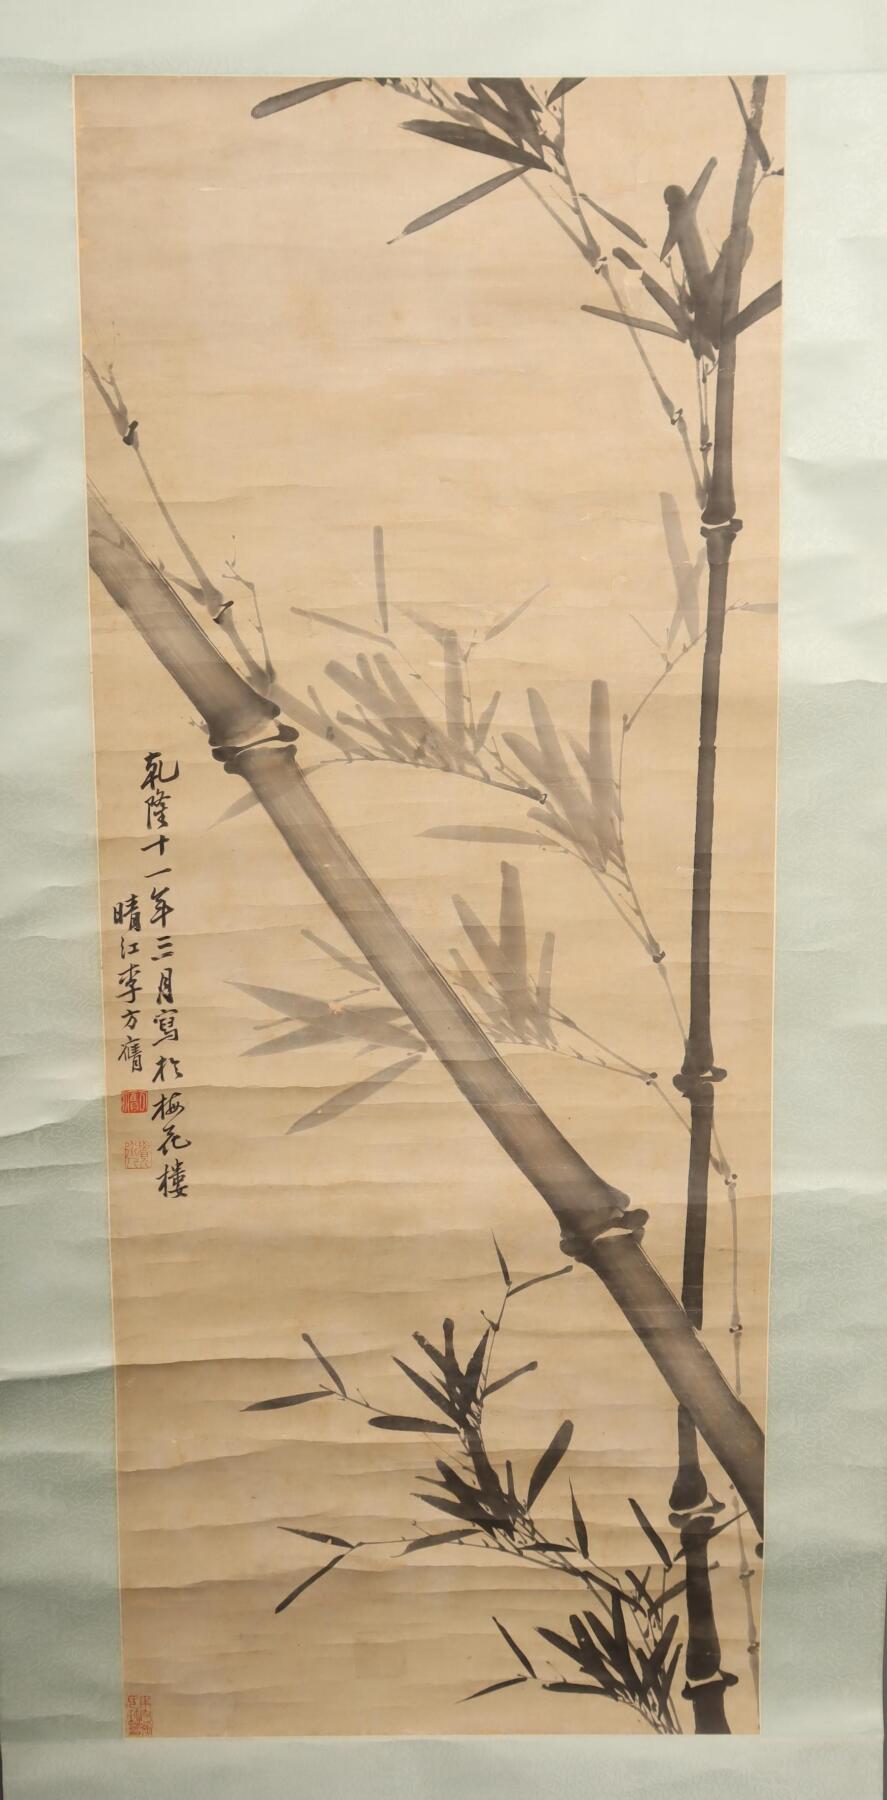 乾隆十一年三月寫於梅花樓
晴江李方膺